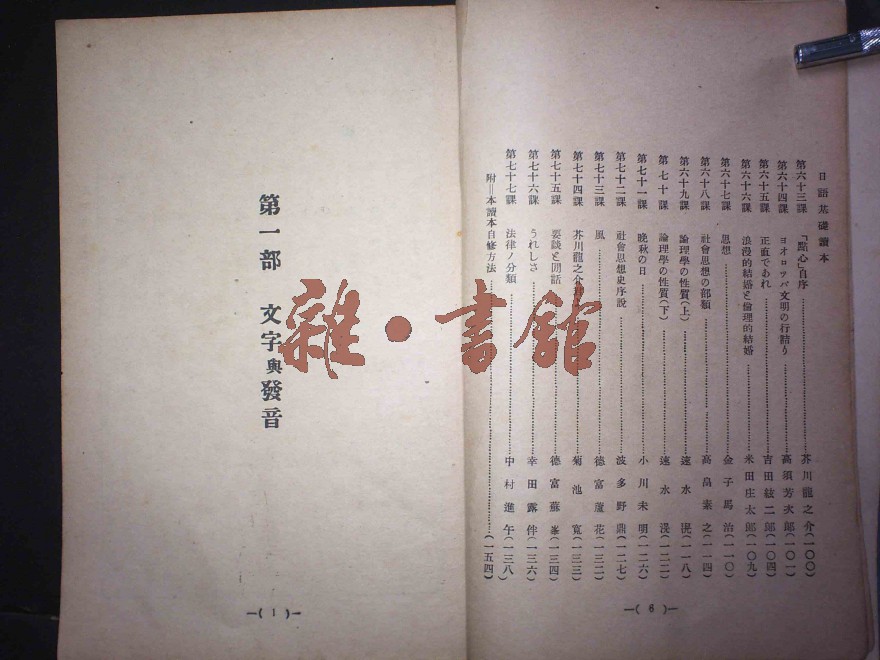 日語基礎讀本
第六十三課 「點心」自序 芥川龍之介(一〇〇)
第六十四課 ヨオロッパ文明の行詰り 高須芳次郎(一〇一)
第六十五課 正直であれ 吉田絃二郎(一〇四)
第六十六課 浪漫的結婚と倫理的結婚 米田庄太郎(一〇九)
第六十七課 思想 金子馬治(一一〇)
第六十八課 社會思想の部類 高畠素之(一一四)
第六十九課 論理學の性質(上) 速水滉(一一八)
第七十課 論理學の性質(下) 速水滉(一二二)
第七十一課 晚秋の日 小川未明(一二六)
第七十二課 社會思想史序說 波多野鼎(一二七)
第七十三課 風 德富蘆花(一三二)
第七十四課 芥川龍之介 菊池寬(一三三)
第七十五課 要談と閑話 德富蘇峯(一三四)
第七十六課 うれしさ 幸田露伴(一三六)
第七十七課 法律ノ分類 中村進午(一三八)
附=本讀本自修方法 (一五四)
—( 6 )—
第一部 文字與發音
—( 1 )—
雜·書館